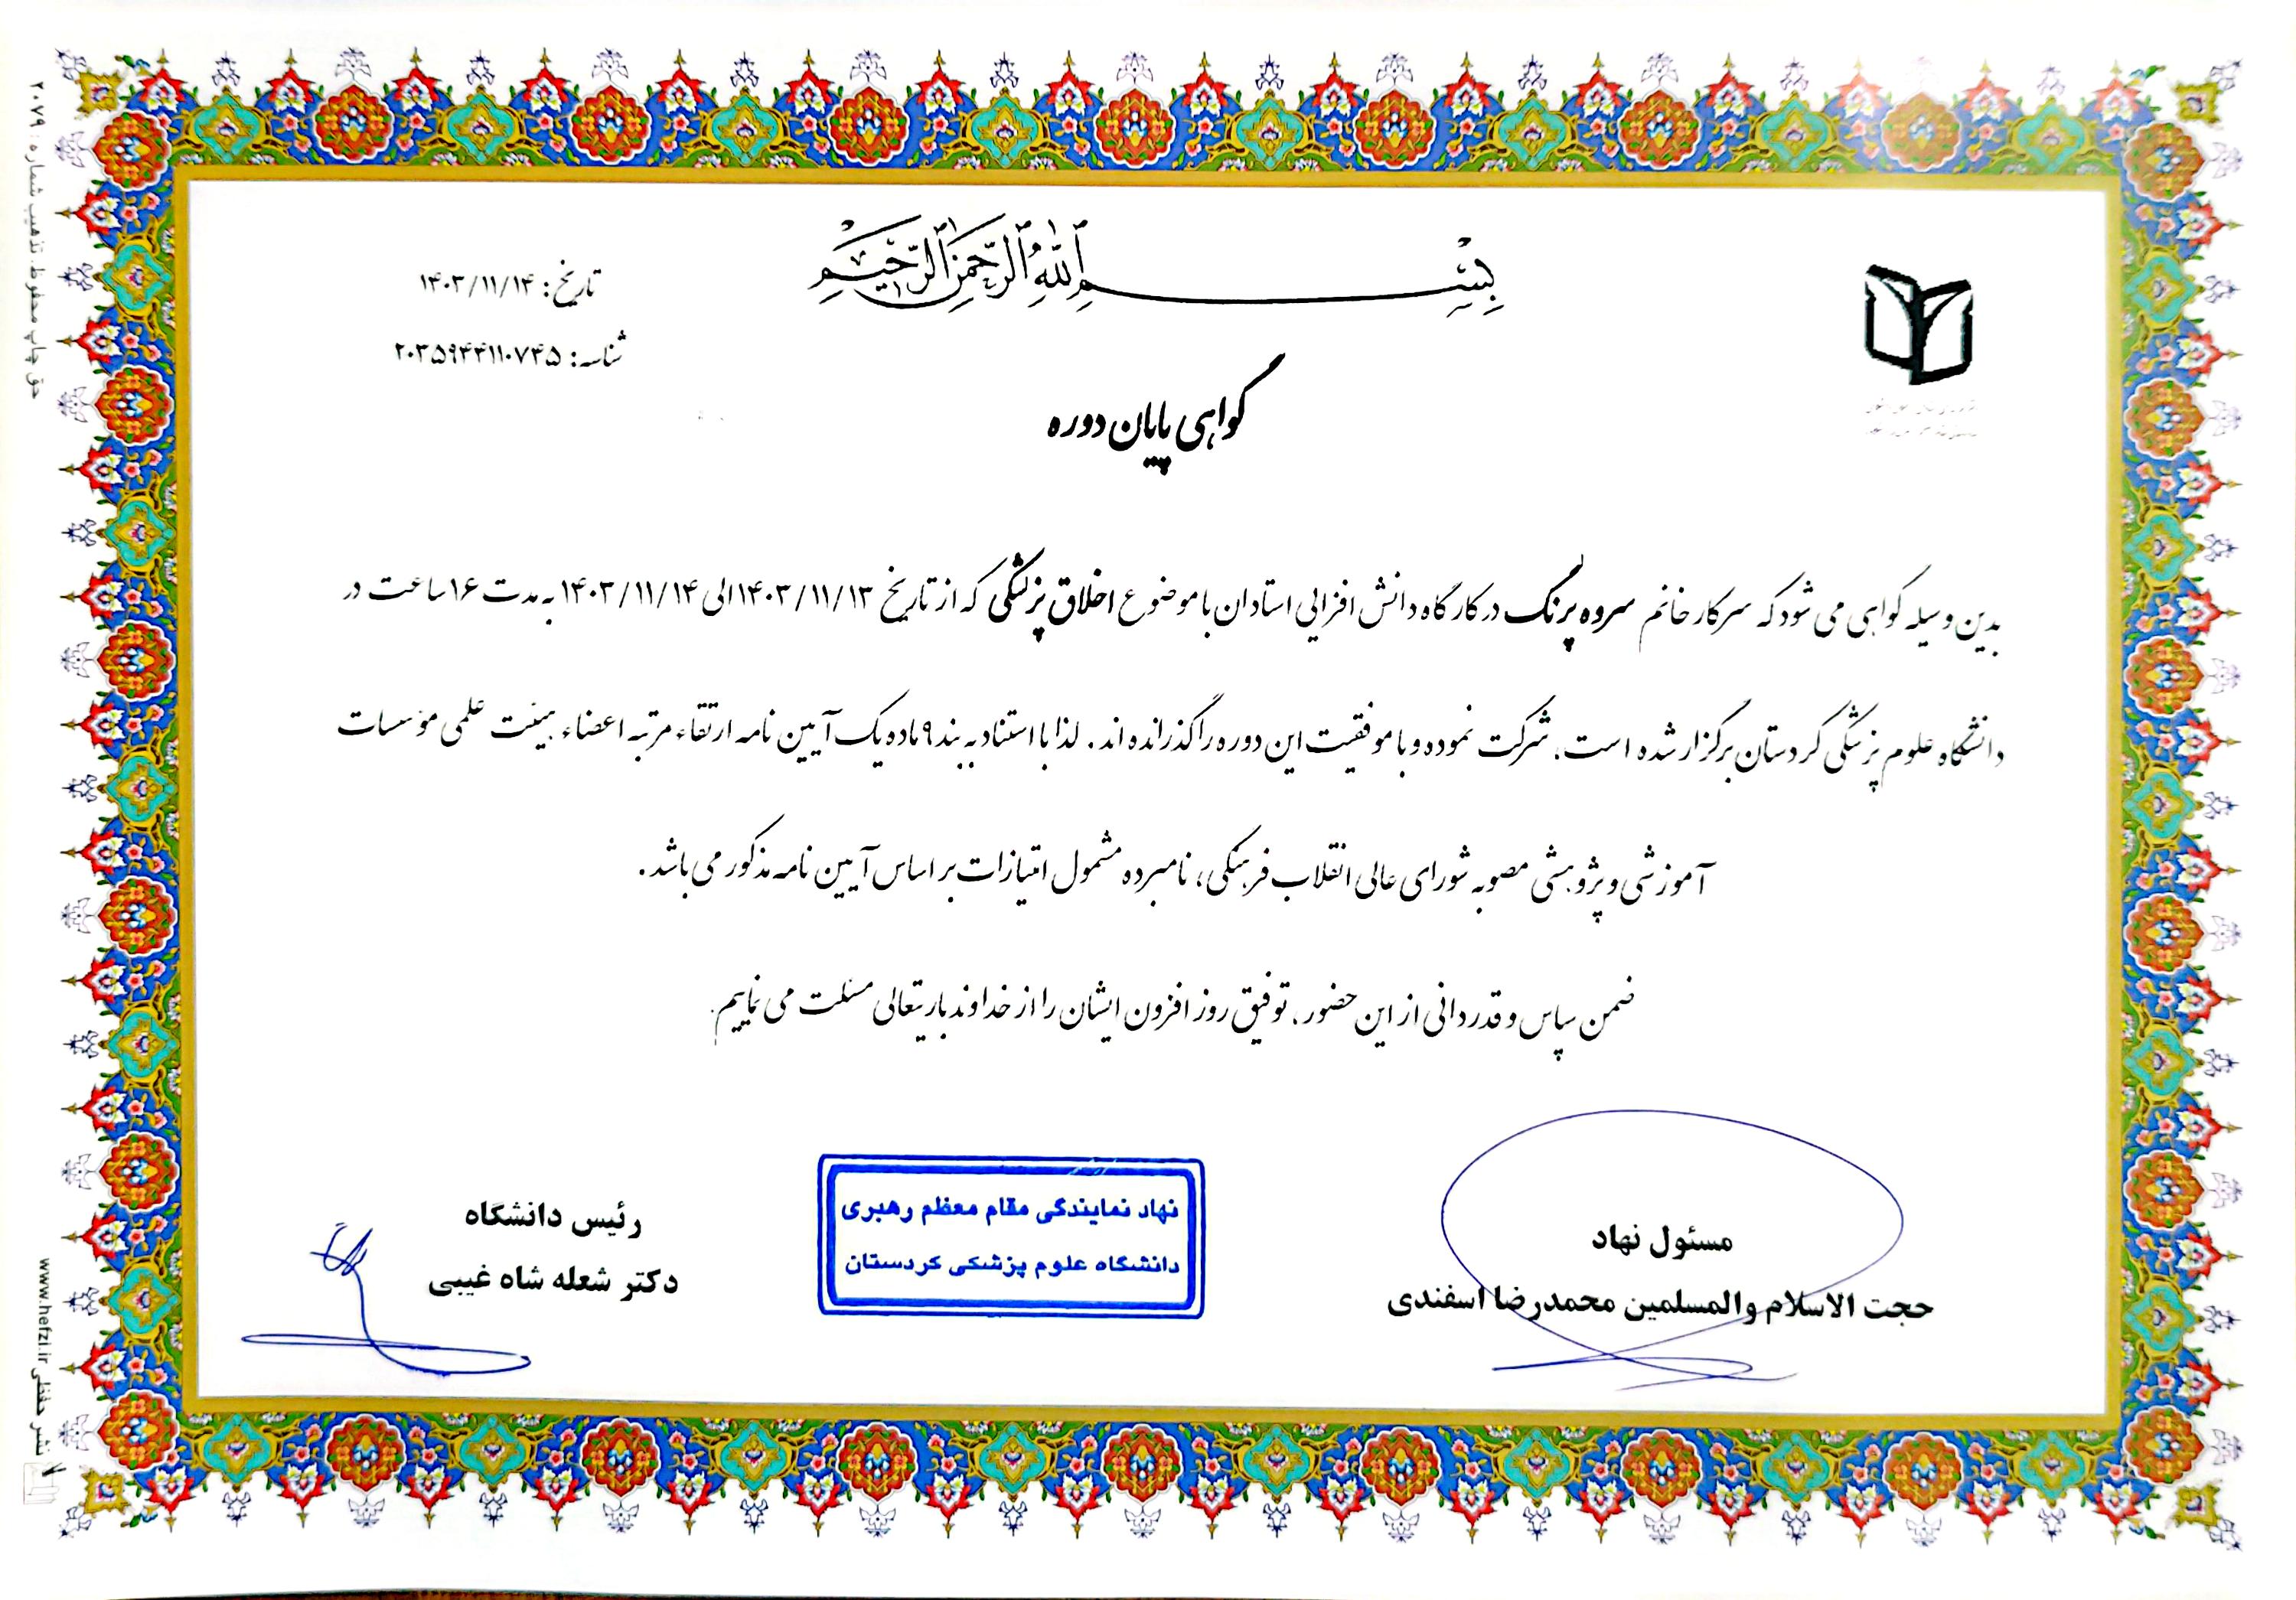 بِسْمِ ٱللَّهِ ٱلرَّحْمَٰنِ ٱلرَّحِيمِ
تاریخ: ۱۴۰۳/۱۱/۱۴
شناسه: ۲۰۳۵۹۴۴۱۱۰۷۴۵
گواهی پایان دوره
بدین وسیله گواهی می شود که سرکار خانم سروه پرنگ در کارگاه دانش افزایی استادان با موضوع اخلاق پزشکی که از تاریخ ۱۴۰۳/۱۱/۱۳ الی ۱۴۰۳/۱۱/۱۴ به مدت ۱۶ ساعت در
دانشگاه علوم پزشکی کردستان برگزار شده است، شرکت نموده و با موفقیت این دوره را گذرانده اند. لذا با استناد به بند ۹ ماده یک آیین نامه ارتقاء مرتبه اعضاء هیئت علمی مؤسسات
آموزشی و پژوهشی مصوبه شورای عالی انقلاب فرهنگی، نامبرده مشمول امتیازات بر اساس آیین نامه مذکور می باشد.
ضمن سپاس و قدردانی از این حضور، توفیق روز افزون ایشان را از خداوند باریتعالی مسئلت می نماییم.
مسئول نهاد
حجت الاسلام والمسلمین محمدرضا اسفندی
نهاد نمایندگی مقام معظم رهبری
دانشگاه علوم پزشکی کردستان
رئیس دانشگاه
دکتر شعله شاه غیبی
حق چاپ محفوظ. تذهیب شماره: ۲۰۷۹
نشر حفظی www.hefzi.ir